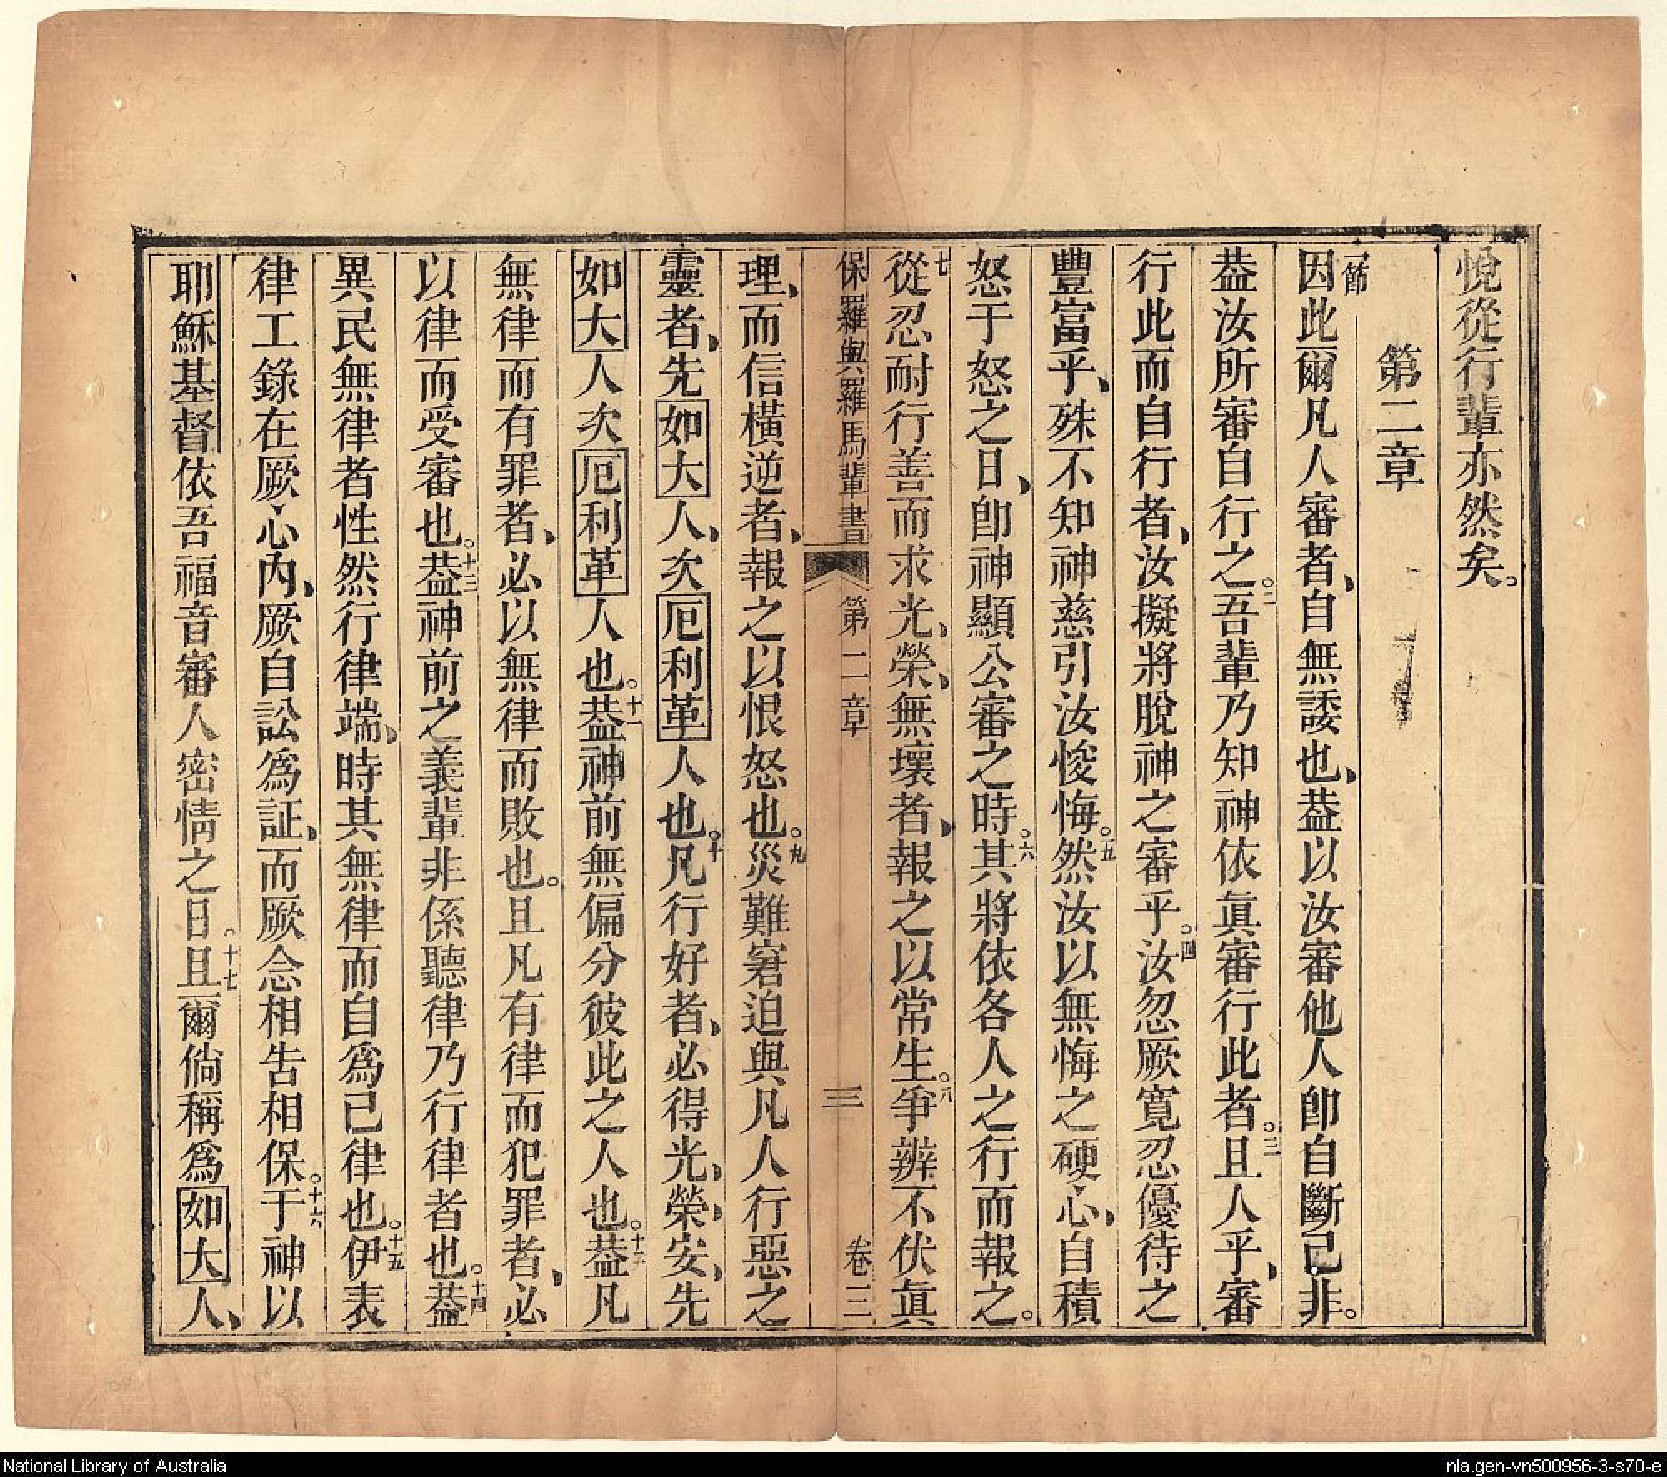 悅從行輩亦然矣。
第二章
一節因此爾凡人審者、自無諉也、葢以汝審他人卽自斷己非。
葢汝所審自行之。二吾輩乃知神依眞審行此者。三且人乎、審
行此而自行者、汝擬將脫神之審乎。四汝忽厥寬忍優待之
豐富乎、殊不知神慈引汝悛悔。五然汝以無悔之硬心、自積
怒于怒之日、卽神顯公審之時。六其將依各人之行而報之。
七從忍耐行善而求光、榮、無壞者、報之以常生。八爭辨不伏眞
保羅與羅馬輩書 第二章 三 卷三
理、而信橫逆者、報之以恨怒也。九災難窘迫與凡人行惡之
靈者、先如大人、次厄利革人也。十凡行好者、必得光、榮、安、先
如大人次厄利革人也。十一葢神前無偏分彼此之人也。十二葢凡
無律而有罪者、必以無律而敗也。且凡有律而犯罪者、必
以律而受審也。十三葢神前之義輩非係聽律乃行律者也。十四葢
異民無律者性然行律端、時其無律而自爲己律也。十五伊表
律工錄在厥心內、厥自訟爲証、而厥念相告相保。十六于神以
耶穌基督依吾福音審人密情之日。十七且爾倘稱爲如大人、
National Library of Australia
nla.gen-vn500956-3-s70-e